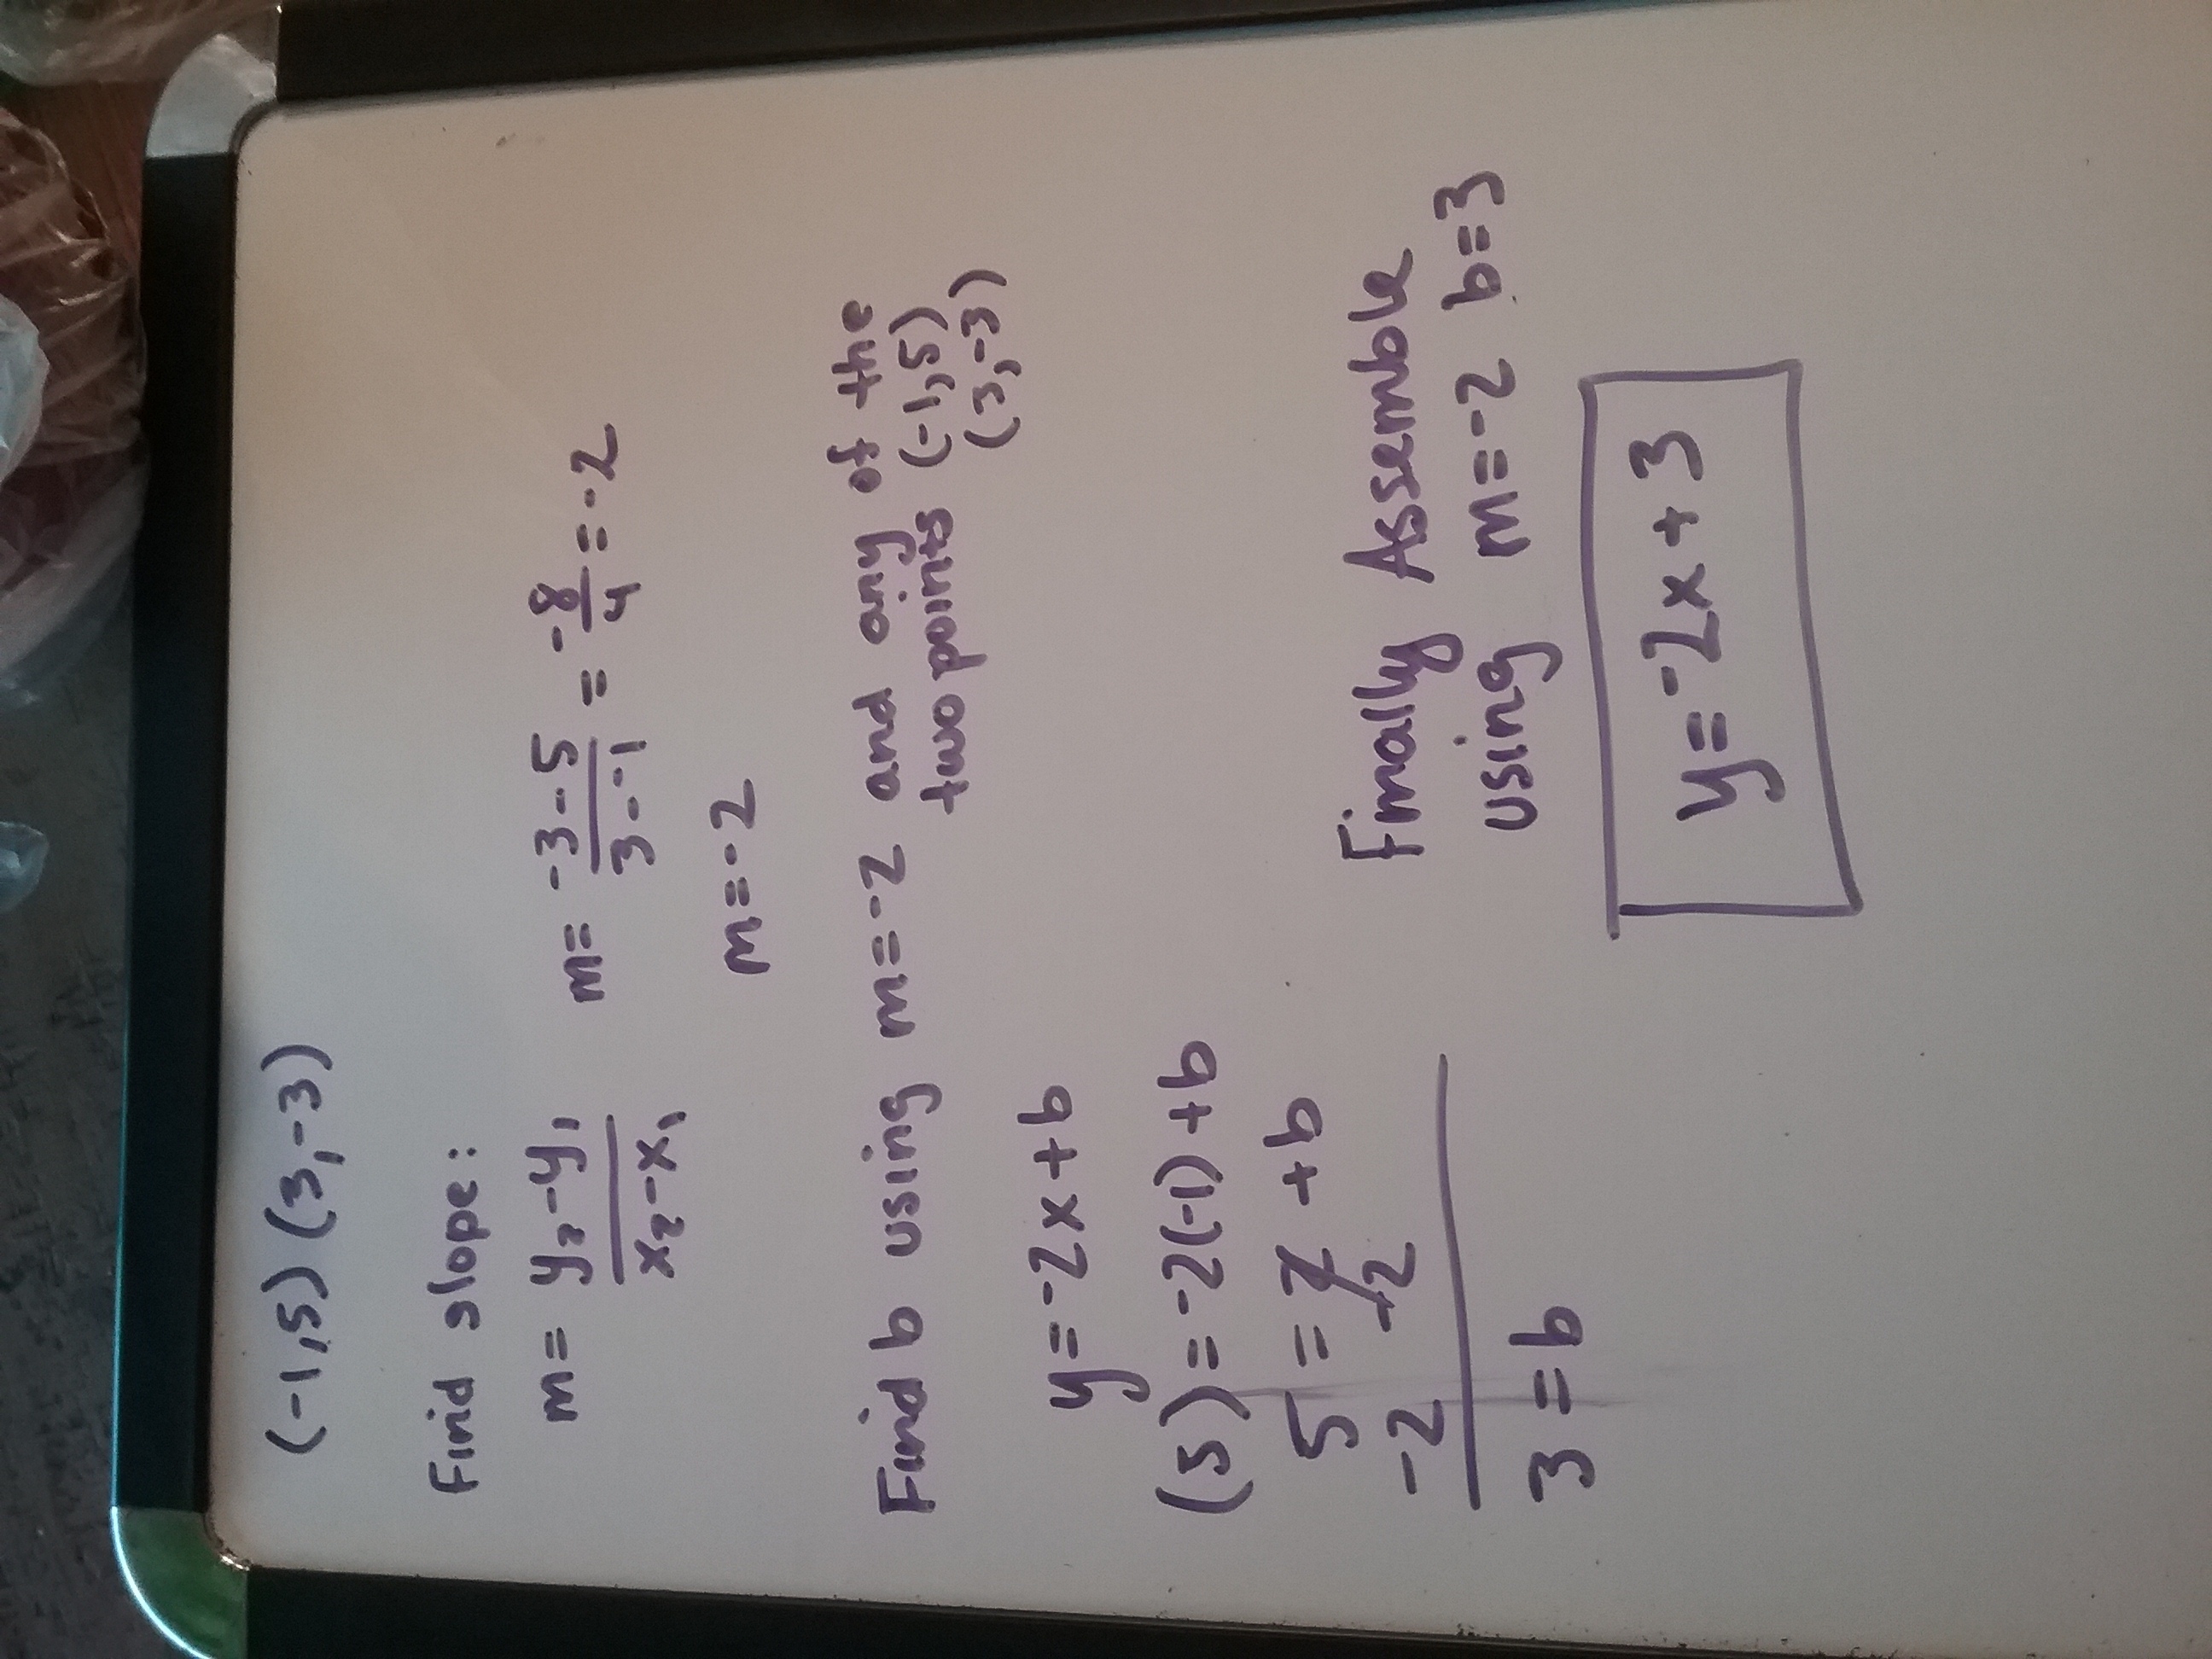 (-1,5) (3,-3)
Find slope:
m= y₂-y₁ / x₂-x₁ m= -3-5 / 3--1 = -8/4 = -2
m=-2
Find b using m=-2 and any of the
two points (-1,5)
(3,-3)
y=-2x+b
(5)=-2(-1)+b
5=2+b
-2 -2
3=b
Finally Assemble
using m=-2 b=3
y=-2x+3